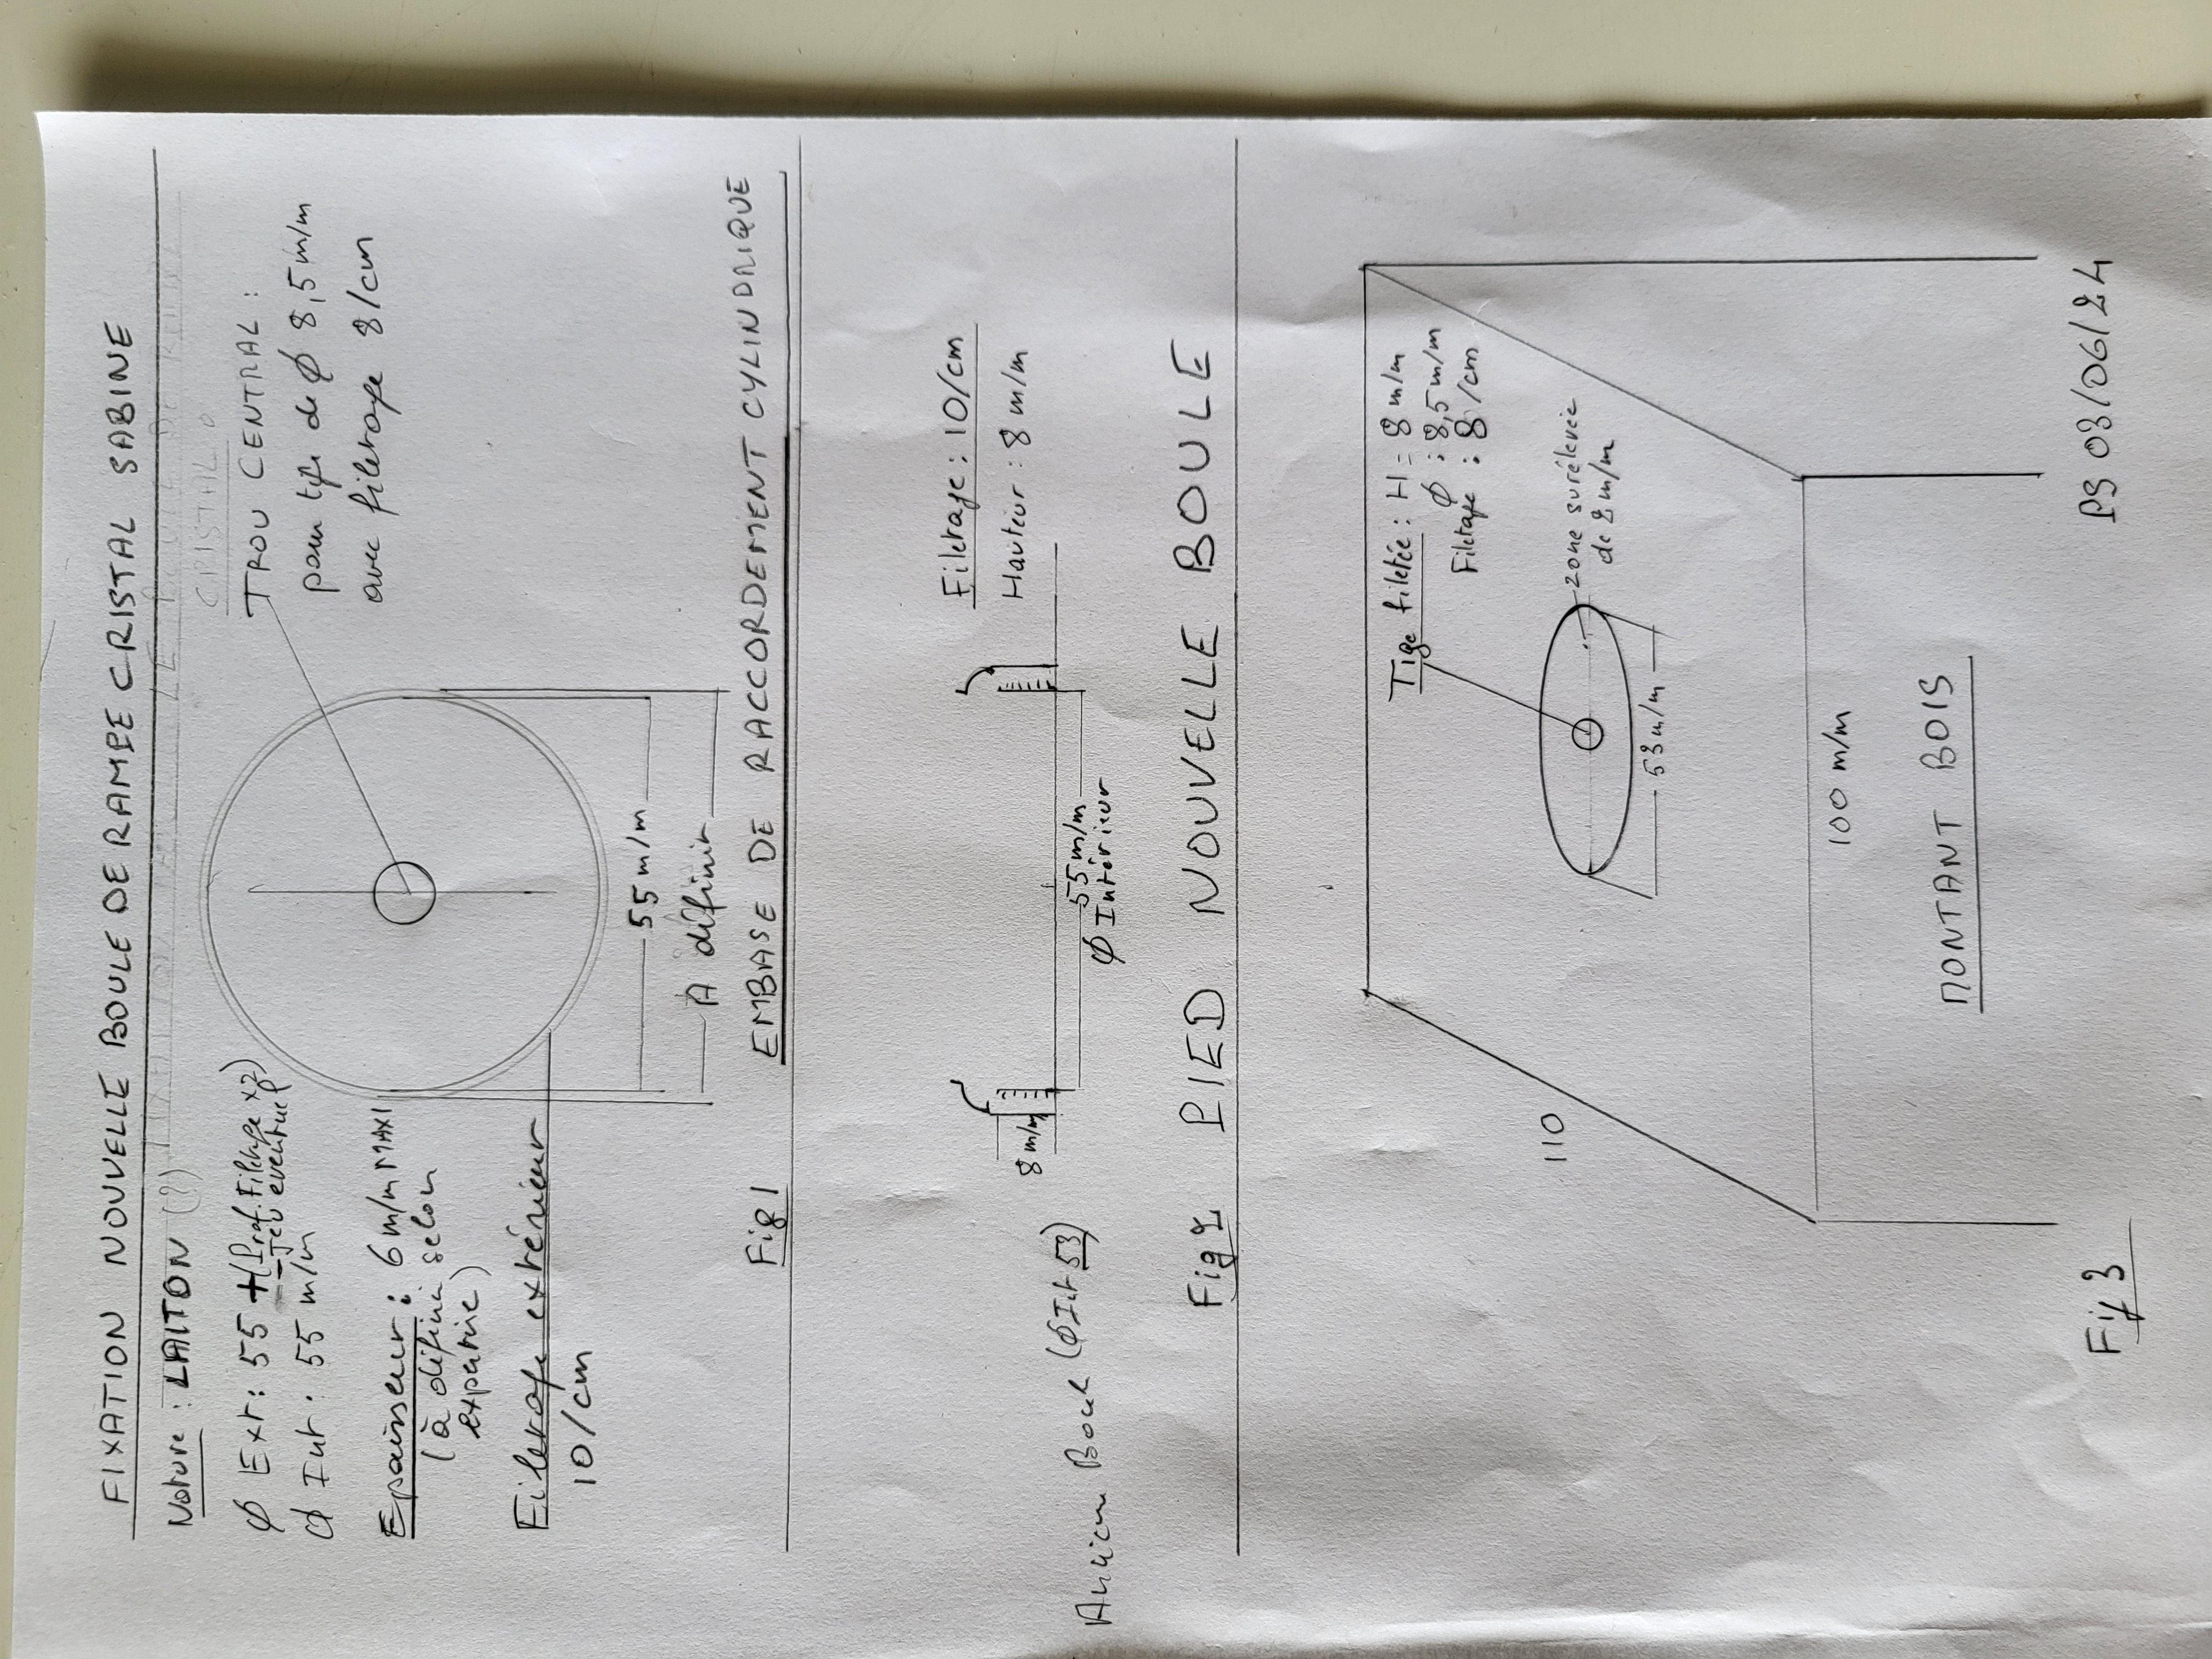 FIXATION NOUVELLE BOULE DE RAMPE CRISTAL SABINE
Nature : LAITON (?)
CRISTAL
TROU CENTRAL :
pour tige de φ 8,5 m/m
avec filetage 8/cm
φ Ext : 55 + (Prof. Filetage x2)
- Jeu eventuel
φ Int : 55 m/m
Epaisseur : 6 m/m MAXI
(à défini selon
expertise)
Filetage extérieur
10/cm
55 m/m
A définir
Fig 1 EMBASE DE RACCORDEMENT CYLINDRIQUE
Filetage : 10/cm
Hauteur : 8 m/m
8 m/m
55 m/m
φ Intérieur
Ancienne Boule (φ Int 53)
Fig 2 PIED NOUVELLE BOULE
Tige filetée : H = 8 m/m
φ : 8,5 m/m
Filetage : 8/cm
zone surélevée
de 2 m/m
53 m/m
110
100 m/m
MONTANT BOIS
Fig 3
PS 03/06/24